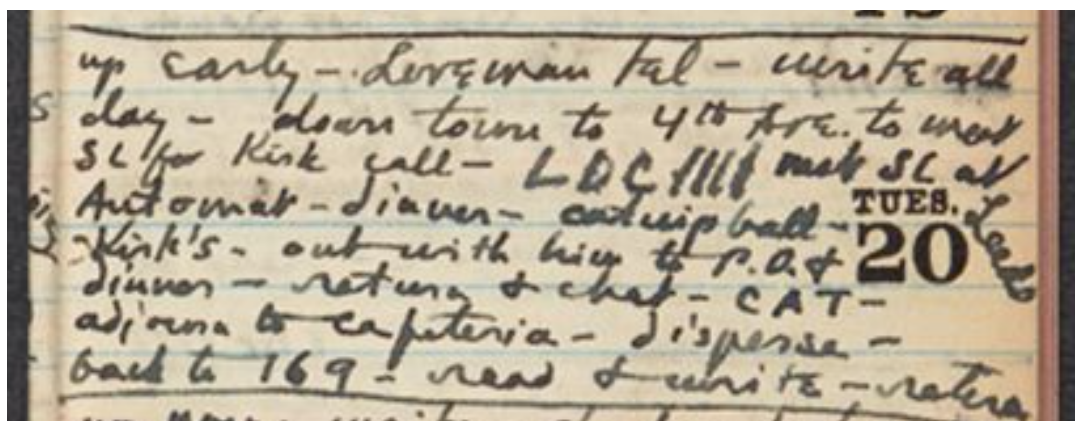 up early – Loveman tel – write all
day – down town to 4th Ave. to meet
SL for Kirk call – LDC |||| meet SL at
Automat – dinner – catnip ball –
TUES.
20
Kirk's – out with him to P.O. &
dinner – return & chat – CAT –
adjourn to cafeteria – disperse –
back to 169 – read & write – retire